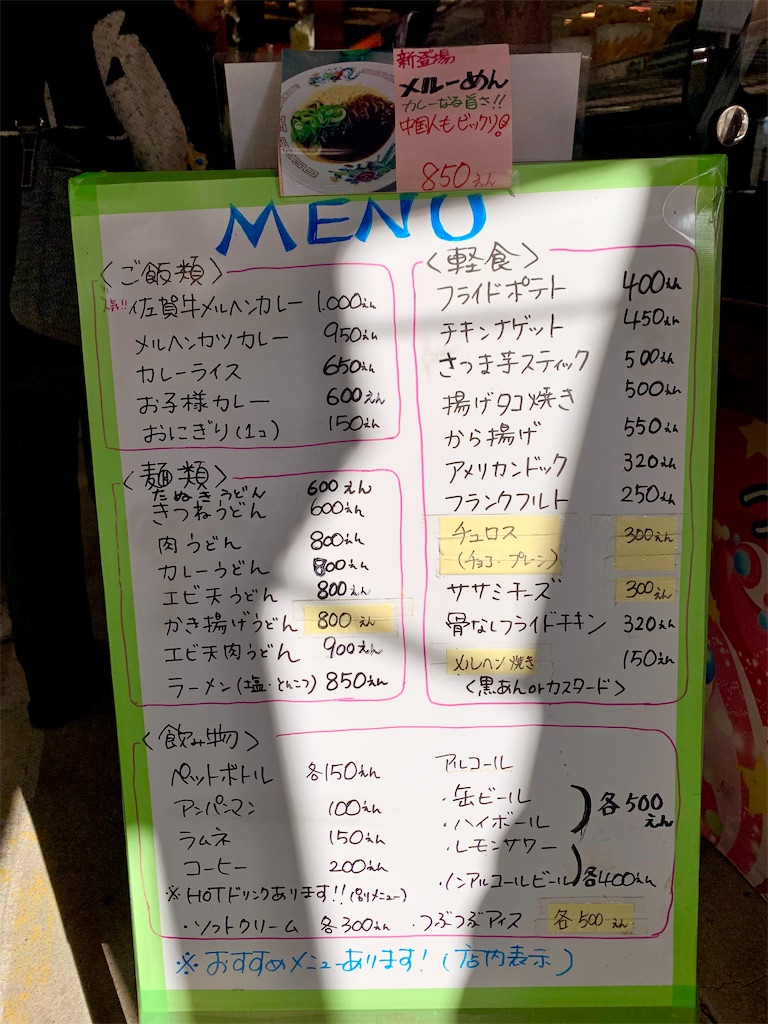 新登場
メルーめん
カレーなる旨さ!!
中国人もビックリ!
850えん
MENU
〈ご飯類〉
佐賀牛メルヘンカレー 1.000えん
メルヘンカツカレー 950えん
カレーライス 650えん
お子様カレー 600えん
おにぎり(1コ) 150えん
〈麺類〉
たぬきうどん 600えん
きつねうどん 600えん
肉うどん 800えん
カレーうどん 800えん
エビ天うどん 800えん
かき揚げうどん 800えん
エビ天肉うどん 900えん
ラーメン(塩・とんこつ) 850えん
〈軽食〉
フライドポテト 400えん
チキンナゲット 450えん
さつま芋スティック 500えん
揚げタコ焼き 500えん
から揚げ 550えん
アメリカンドック 320えん
フランクフルト 250えん
チュロス 300えん
(チョコ・プレーン)
ササミチーズ 300えん
骨なしフライドチキン 320えん
メルヘン焼き 150えん
〈黒あんorカスタード〉
〈飲み物〉
ペットボトル 各150えん
アンパーマン 100えん
ラムネ 150えん
コーヒー 200えん
※HOTドリンクあります!!(別メニュー)
アルコール
・缶ビール
・ハイボール
各500えん
・レモンサワー
・ノンアルコールビール
各400えん
・ソフトクリーム 各300えん ・つぶつぶアイス 各500えん
※おすすめメニューあります!(店内表示)